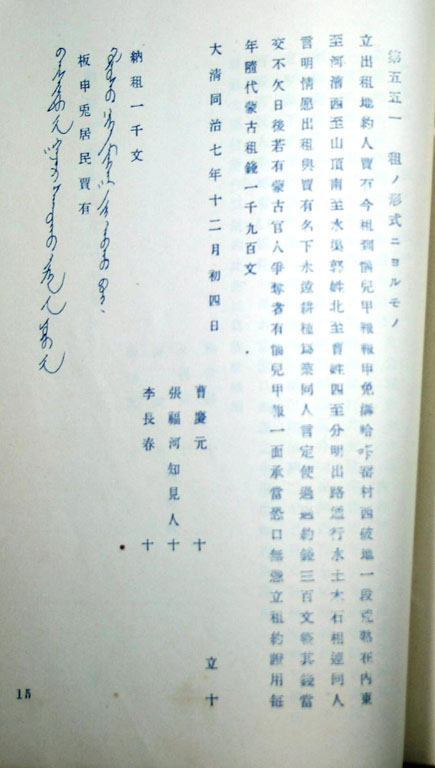 第五五一 租ノ形式ニヨルモノ
立出租地約人賈有今租到惱兒甲報報甲兎村西破地一段荒熟在內東
至河濱西至山頂南至水渠郭姓北至曹姓四至分明出路通行水土木石相連同人
言明情愿出租與賈有名下永遠耕種爲業同人言定使過過約錢三百文整其錢當
交不欠日後若有蒙古官人爭奪者有惱兒甲報一面承當恐口無憑立租約證用每
年隨代蒙古租錢一千九百文
大清同治七年十二月初四日 立十
曹慶元 十
張福河知見人十
李長春 十
納租一千文
板申兎居民賈有
15